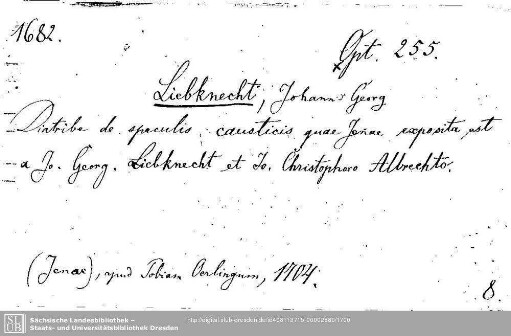 1682.
Opt. 255.
Liebknecht, Johann Georg
Diatribe de speculis causticis quae Jenae exposita est
a Jo. Georg. Liebknecht et Jo. Christophoro Albrechto.
(Jenae), apud Tobiam Oerlingum, 1704.
8.
Sächsische Landesbibliothek –
Staats- und Universitätsbibliothek Dresden